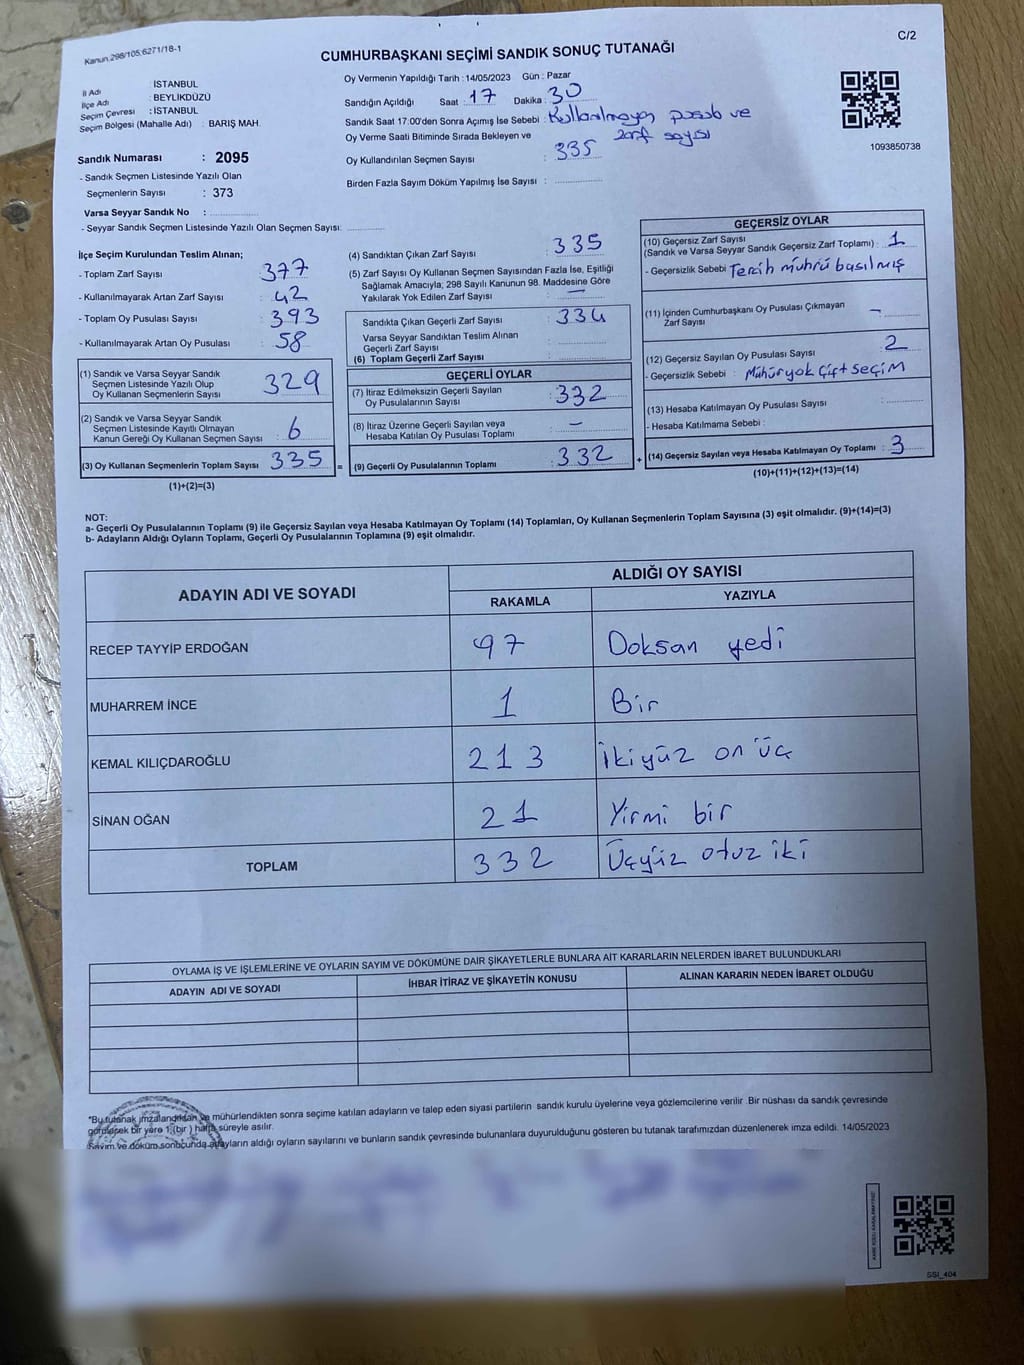 Kanun.298/105;6271/18-1
C/2
CUMHURBAŞKANI SEÇİMİ SANDIK SONUÇ TUTANAĞI
İl Adı : İSTANBUL
İlçe Adı : BEYLİKDÜZÜ
Seçim Çevresi : İSTANBUL
Seçim Bölgesi (Mahalle Adı) : BARIŞ MAH.
Sandık Numarası : 2095
- Sandık Seçmen Listesinde Yazılı Olan
Seçmenlerin Sayısı : 373
Varsa Seyyar Sandık No :
- Seyyar Sandık Seçmen Listesinde Yazılı Olan Seçmen Sayısı:
Oy Vermenin Yapıldığı Tarih : 14/05/2023 Gün : Pazar
Sandığın Açıldığı Saat : 17 Dakika : 30
Sandık Saat 17:00'den Sonra Açımış İse Sebebi : Kullanılmayan pusula ve
zarf sayısı
Oy Verme Saati Bitiminde Sırada Bekleyen ve
Oy Kullandırılan Seçmen Sayısı : 335
Birden Fazla Sayım Döküm Yapılmış İse Sayısı :
1093850738
İlçe Seçim Kurulundan Teslim Alınan;
- Toplam Zarf Sayısı : 377
- Kullanılmayarak Artan Zarf Sayısı : 42
- Toplam Oy Pusulası Sayısı : 393
- Kullanılmayarak Artan Oy Pusulası : 58
(1) Sandık ve Varsa Seyyar Sandık
Seçmen Listesinde Yazılı Olup
Oy Kullanan Seçmenlerin Sayısı : 329
(2) Sandık ve Varsa Seyyar Sandık
Seçmen Listesinde Kayıtlı Olmayan
Kanun Gereği Oy Kullanan Seçmen Sayısı : 6
(3) Oy Kullanan Seçmenlerin Toplam Sayısı : 335 =
(1)+(2)=(3)
(4) Sandıktan Çıkan Zarf Sayısı : 335
(5) Zarf Sayısı Oy Kullanan Seçmen Sayısından Fazla İse, Eşitliği
Sağlamak Amacıyla; 298 Sayılı Kanunun 98. Maddesine Göre
Yakılarak Yok Edilen Zarf Sayısı : —
Sandıkta Çıkan Geçerli Zarf Sayısı : 334
Varsa Seyyar Sandıktan Teslim Alınan
Geçerli Zarf Sayısı :
(6) Toplam Geçerli Zarf Sayısı :
GEÇERLİ OYLAR
(7) İtiraz Edilmeksizin Geçerli Sayılan
Oy Pusulalarının Sayısı : 332
(8) İtiraz Üzerine Geçerli Sayılan veya
Hesaba Katılan Oy Pusulası Toplamı : —
(9) Geçerli Oy Pusulalarının Toplamı : 332 +
GEÇERSİZ OYLAR
(10) Geçersiz Zarf Sayısı
(Sandık ve Varsa Seyyar Sandık Geçersiz Zarf Toplamı) : 1
- Geçersizlik Sebebi : Tercih mührü basılmış
(11) İçinden Cumhurbaşkanı Oy Pusulası Çıkmayan
Zarf Sayısı : —
(12) Geçersiz Sayılan Oy Pusulası Sayısı : 2
- Geçersizlik Sebebi : Mühür yok çift seçim
(13) Hesaba Katılmayan Oy Pusulası Sayısı :
- Hesaba Katılmama Sebebi :
(14) Geçersiz Sayılan veya Hesaba Katılmayan Oy Toplamı : 3
(10)+(11)+(12)+(13)=(14)
NOT:
a- Geçerli Oy Pusulalarının Toplamı (9) ile Geçersiz Sayılan veya Hesaba Katılmayan Oy Toplamı (14) Toplamları, Oy Kullanan Seçmenlerin Toplam Sayısına (3) eşit olmalıdır. (9)+(14)=(3)
b- Adayların Aldığı Oyların Toplamı, Geçerli Oy Pusulalarının Toplamına (9) eşit olmalıdır.
ADAYIN ADI VE SOYADI
ALDIĞI OY SAYISI
RAKAMLA YAZIYLA
RECEP TAYYİP ERDOĞAN 97 Doksan yedi
MUHARREM İNCE 1 Bir
KEMAL KILIÇDAROĞLU 213 İkiyüz on üç
SİNAN OĞAN 21 Yirmi bir
TOPLAM 332 Üçyüz otuz iki
OYLAMA İŞ VE İŞLEMLERİNE VE OYLARIN SAYIM VE DÖKÜMÜNE DAİR ŞİKAYETLERLE BUNLARA AİT KARARLARIN NELERDEN İBARET BULUNDUKLARI
ADAYIN ADI VE SOYADI İHBAR İTİRAZ VE ŞİKAYETİN KONUSU ALINAN KARARIN NEDEN İBARET OLDUĞU
*Bu tutanak imzalandıktan ve mühürlendikten sonra seçime katılan adayların ve talep eden siyasi partilerin sandık kurulu üyelerine veya gözlemcilerine verilir .Bir nüshası da sandık çevresinde
görülecek bir yere 1 (bir ) hafta süreyle asılır.
Sayım ve döküm sonucunda adayların aldığı oyların sayılarını ve bunların sandık çevresinde bulunanlara duyurulduğunu gösteren bu tutanak tarafımızdan düzenlenerek imza edildi. 14/05/2023
SSI_404